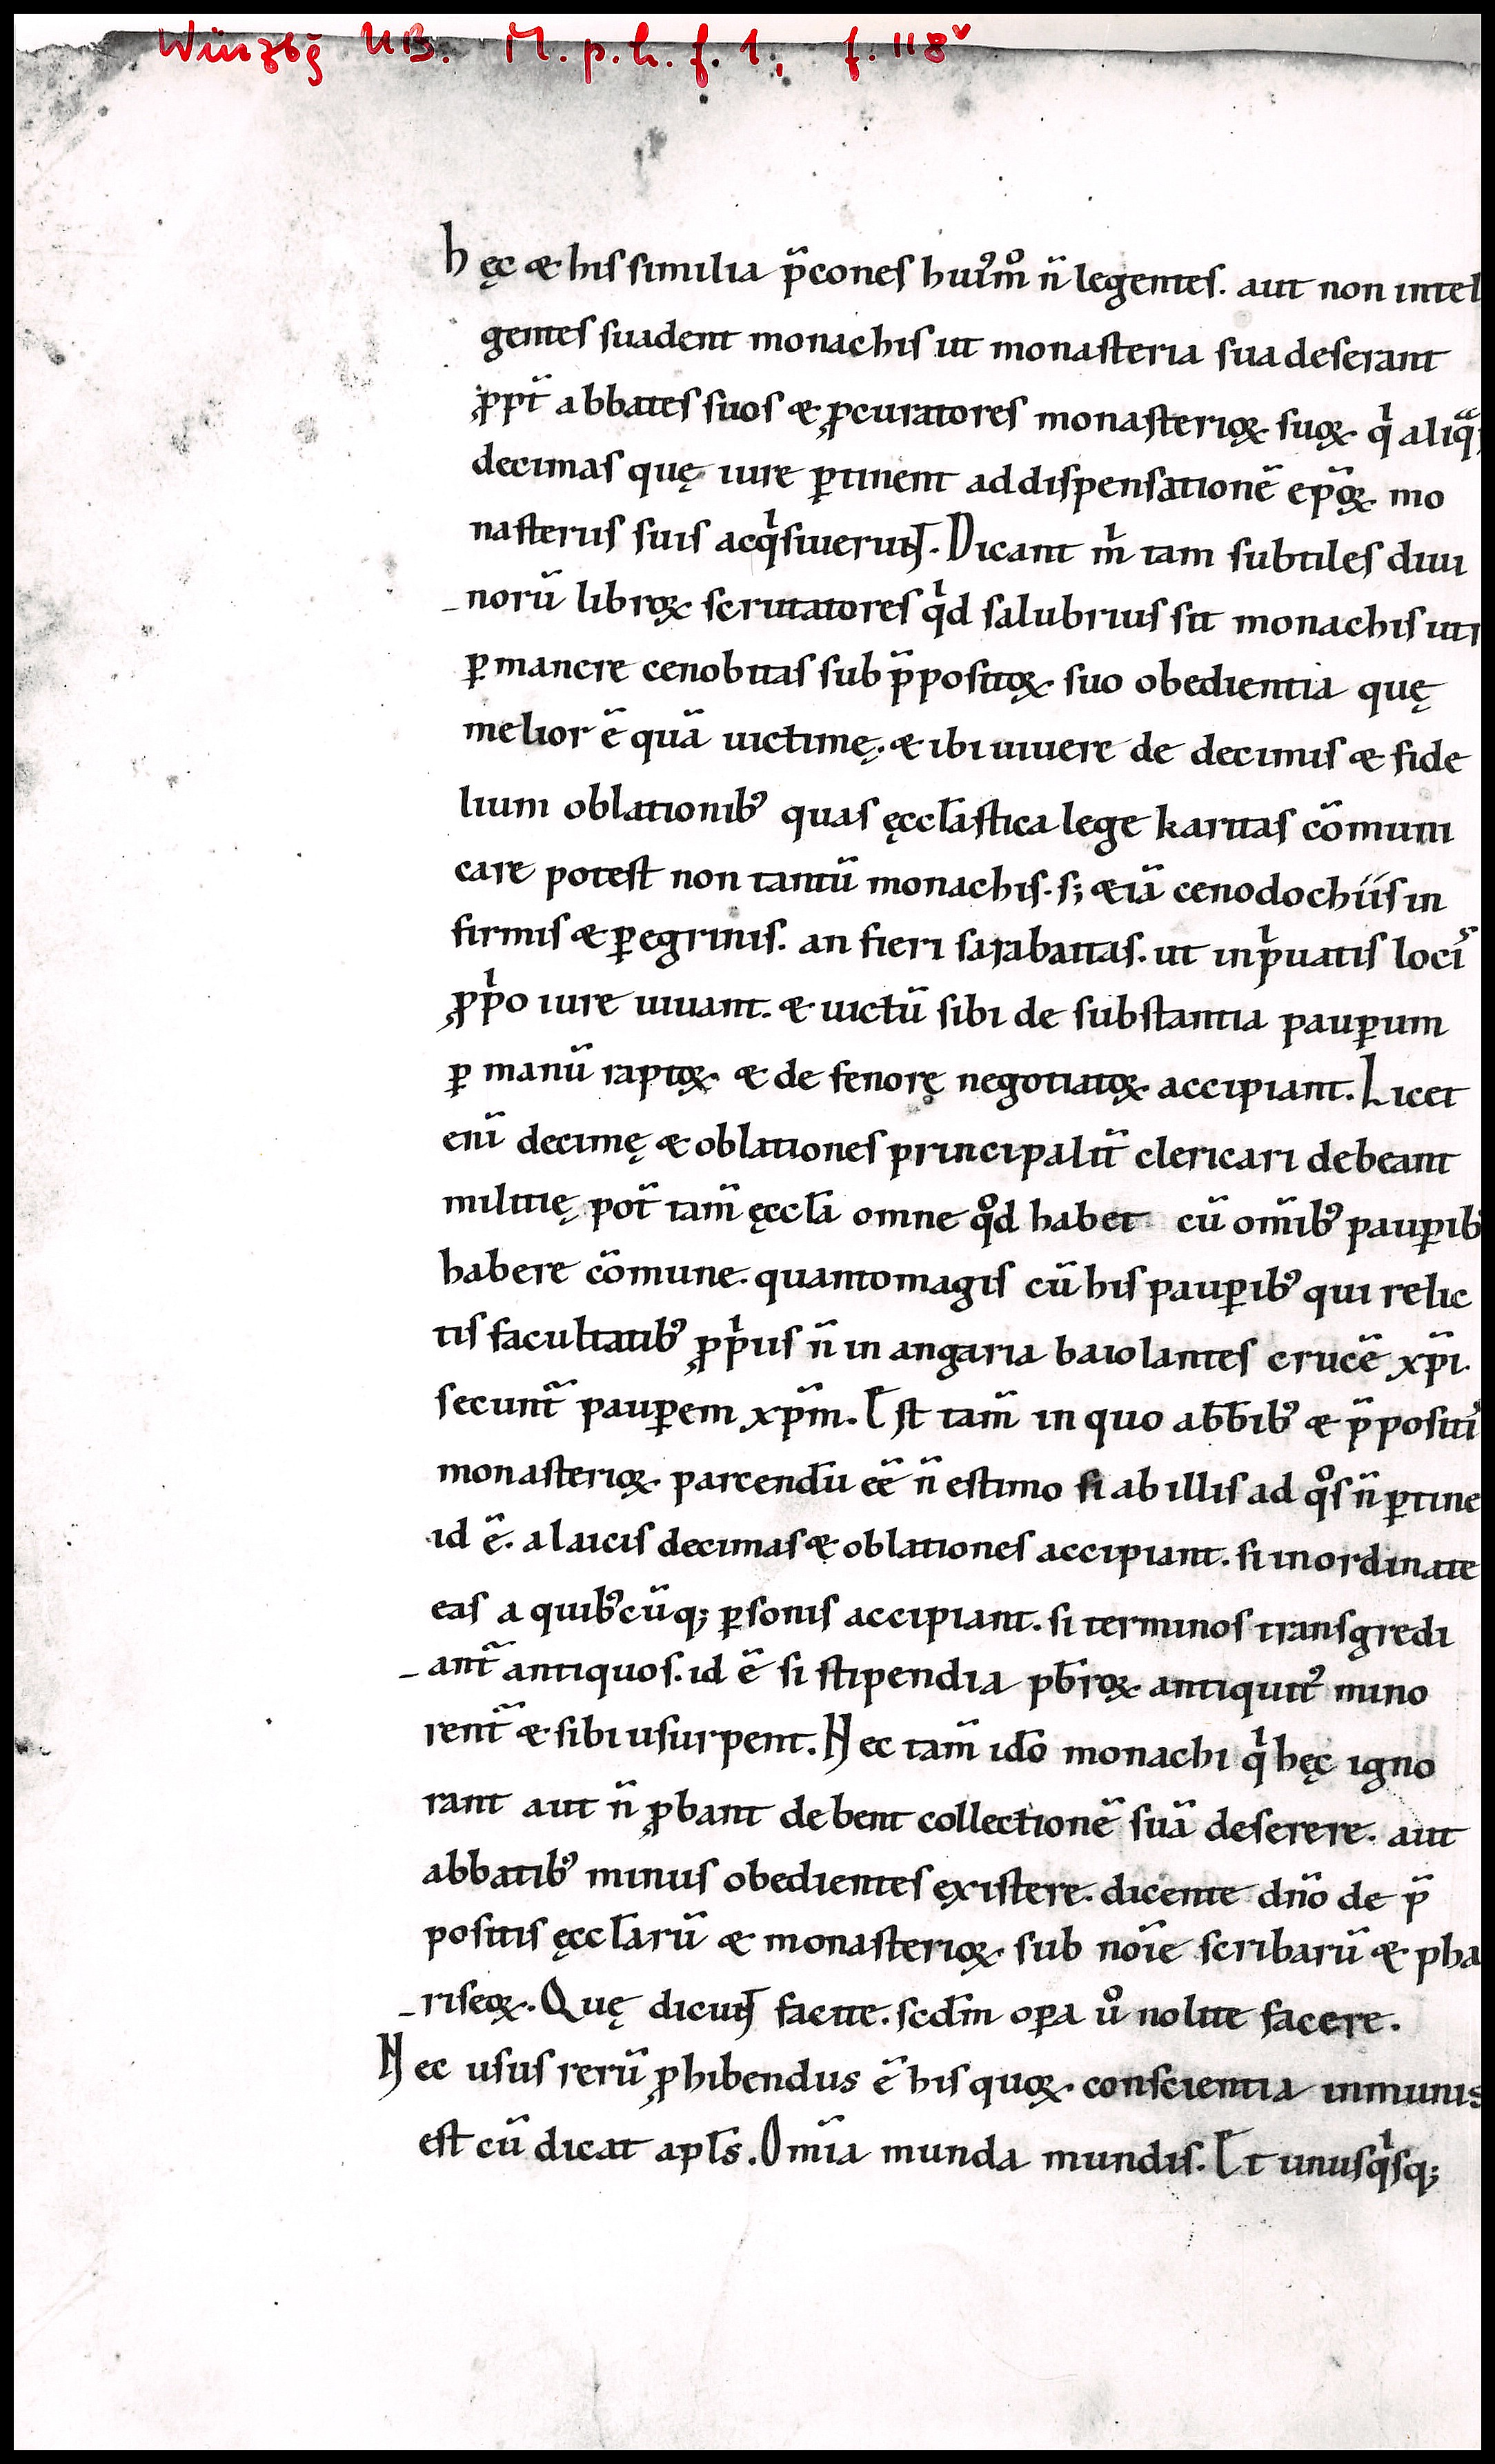 Würzbg̅ UB. M. p. h. f. 1, f. 118ᵛ
hęc & his similia p̅cones hui᷒mͦ n̅ legentes. aut non intel
gentes suadent monachis ut monasteria sua deserant
ꝓpt̅ abbates suos & ꝓcuratores monasterioꝝ suoꝝ qͥ aliqᷓ
decimas quę iure ꝑtinent ad dispensationē ep̅oꝝ mo
nasteriis suis acqͥsiuerunt. Dicant mͥ tam subtiles diui
norū libroꝝ scrutatores qͥd salubrius sit monachis uti
ꝑmanere cenobitas sub p̅positoꝝ suo obedientia quę
melior ē quā uictimę. & ibi uiuere de decimis & fide
lium oblationibꝰ quas ęccl̅astica lege karitas cōmuni
care potest non tantū monachis. s; &iā cenodochiis in
firmis & ꝑegrinis. an fieri sarabaitas. ut in pͥuatis locis
ꝓpͥo iure uiuant. & uictū sibi de substantia pauꝑum
ꝑ manū raptoꝝ & de fenorę negotiatoꝝ accipiant. Licet
enī decimę & oblationes principalit̅ clericari debeant
militię pot̅ tam̅ ęccl̅a omne qͦd habet cū om̅ibꝰ pauꝑib
habere cōmune. quanto magis cū his pauꝑibꝰ qui relic
tis facultatibꝰ ꝓpͥis n̅ in angaria baiolantes crucē xp̅i
secunt̅ pauꝑem xp̅m. Est tam̅ in quo abb̅ibꝰ & p̅positi᷒
monasterioꝝ parcendū eē n̅ estimo si ab illis ad qͦs n̅ ꝑtine
id ē. a laicis decimas & oblationes accipiant. si inordinate
eas a quibꝰcūq; ꝑsonis accipiant. si terminos transgredi
ant̅ antiquos. id ē si stipendia pb̅roꝝ antiquit᷒ mino
rent̅ & sibi usurpent. Nec tam̅ ido̅ monachi qͥ hęc igno
rant aut n̅ ꝓbant debent collectionē suā deserere. aut
abbatibꝰ minus obedientes ęxistere. dicente dn̅o de p̅
positis ęccl̅arū & monasterioꝝ sub noīe scribarū & pha
riseoꝝ. Quę dicunt facite. scd̅m oꝑa uͦ nolite facere.
Nec usus rerū ꝓhibendus ē his quoꝝ conscientia inmunis
est cū dicat apl̅s. Om̅ia munda mundis. Et unusqͥsq;